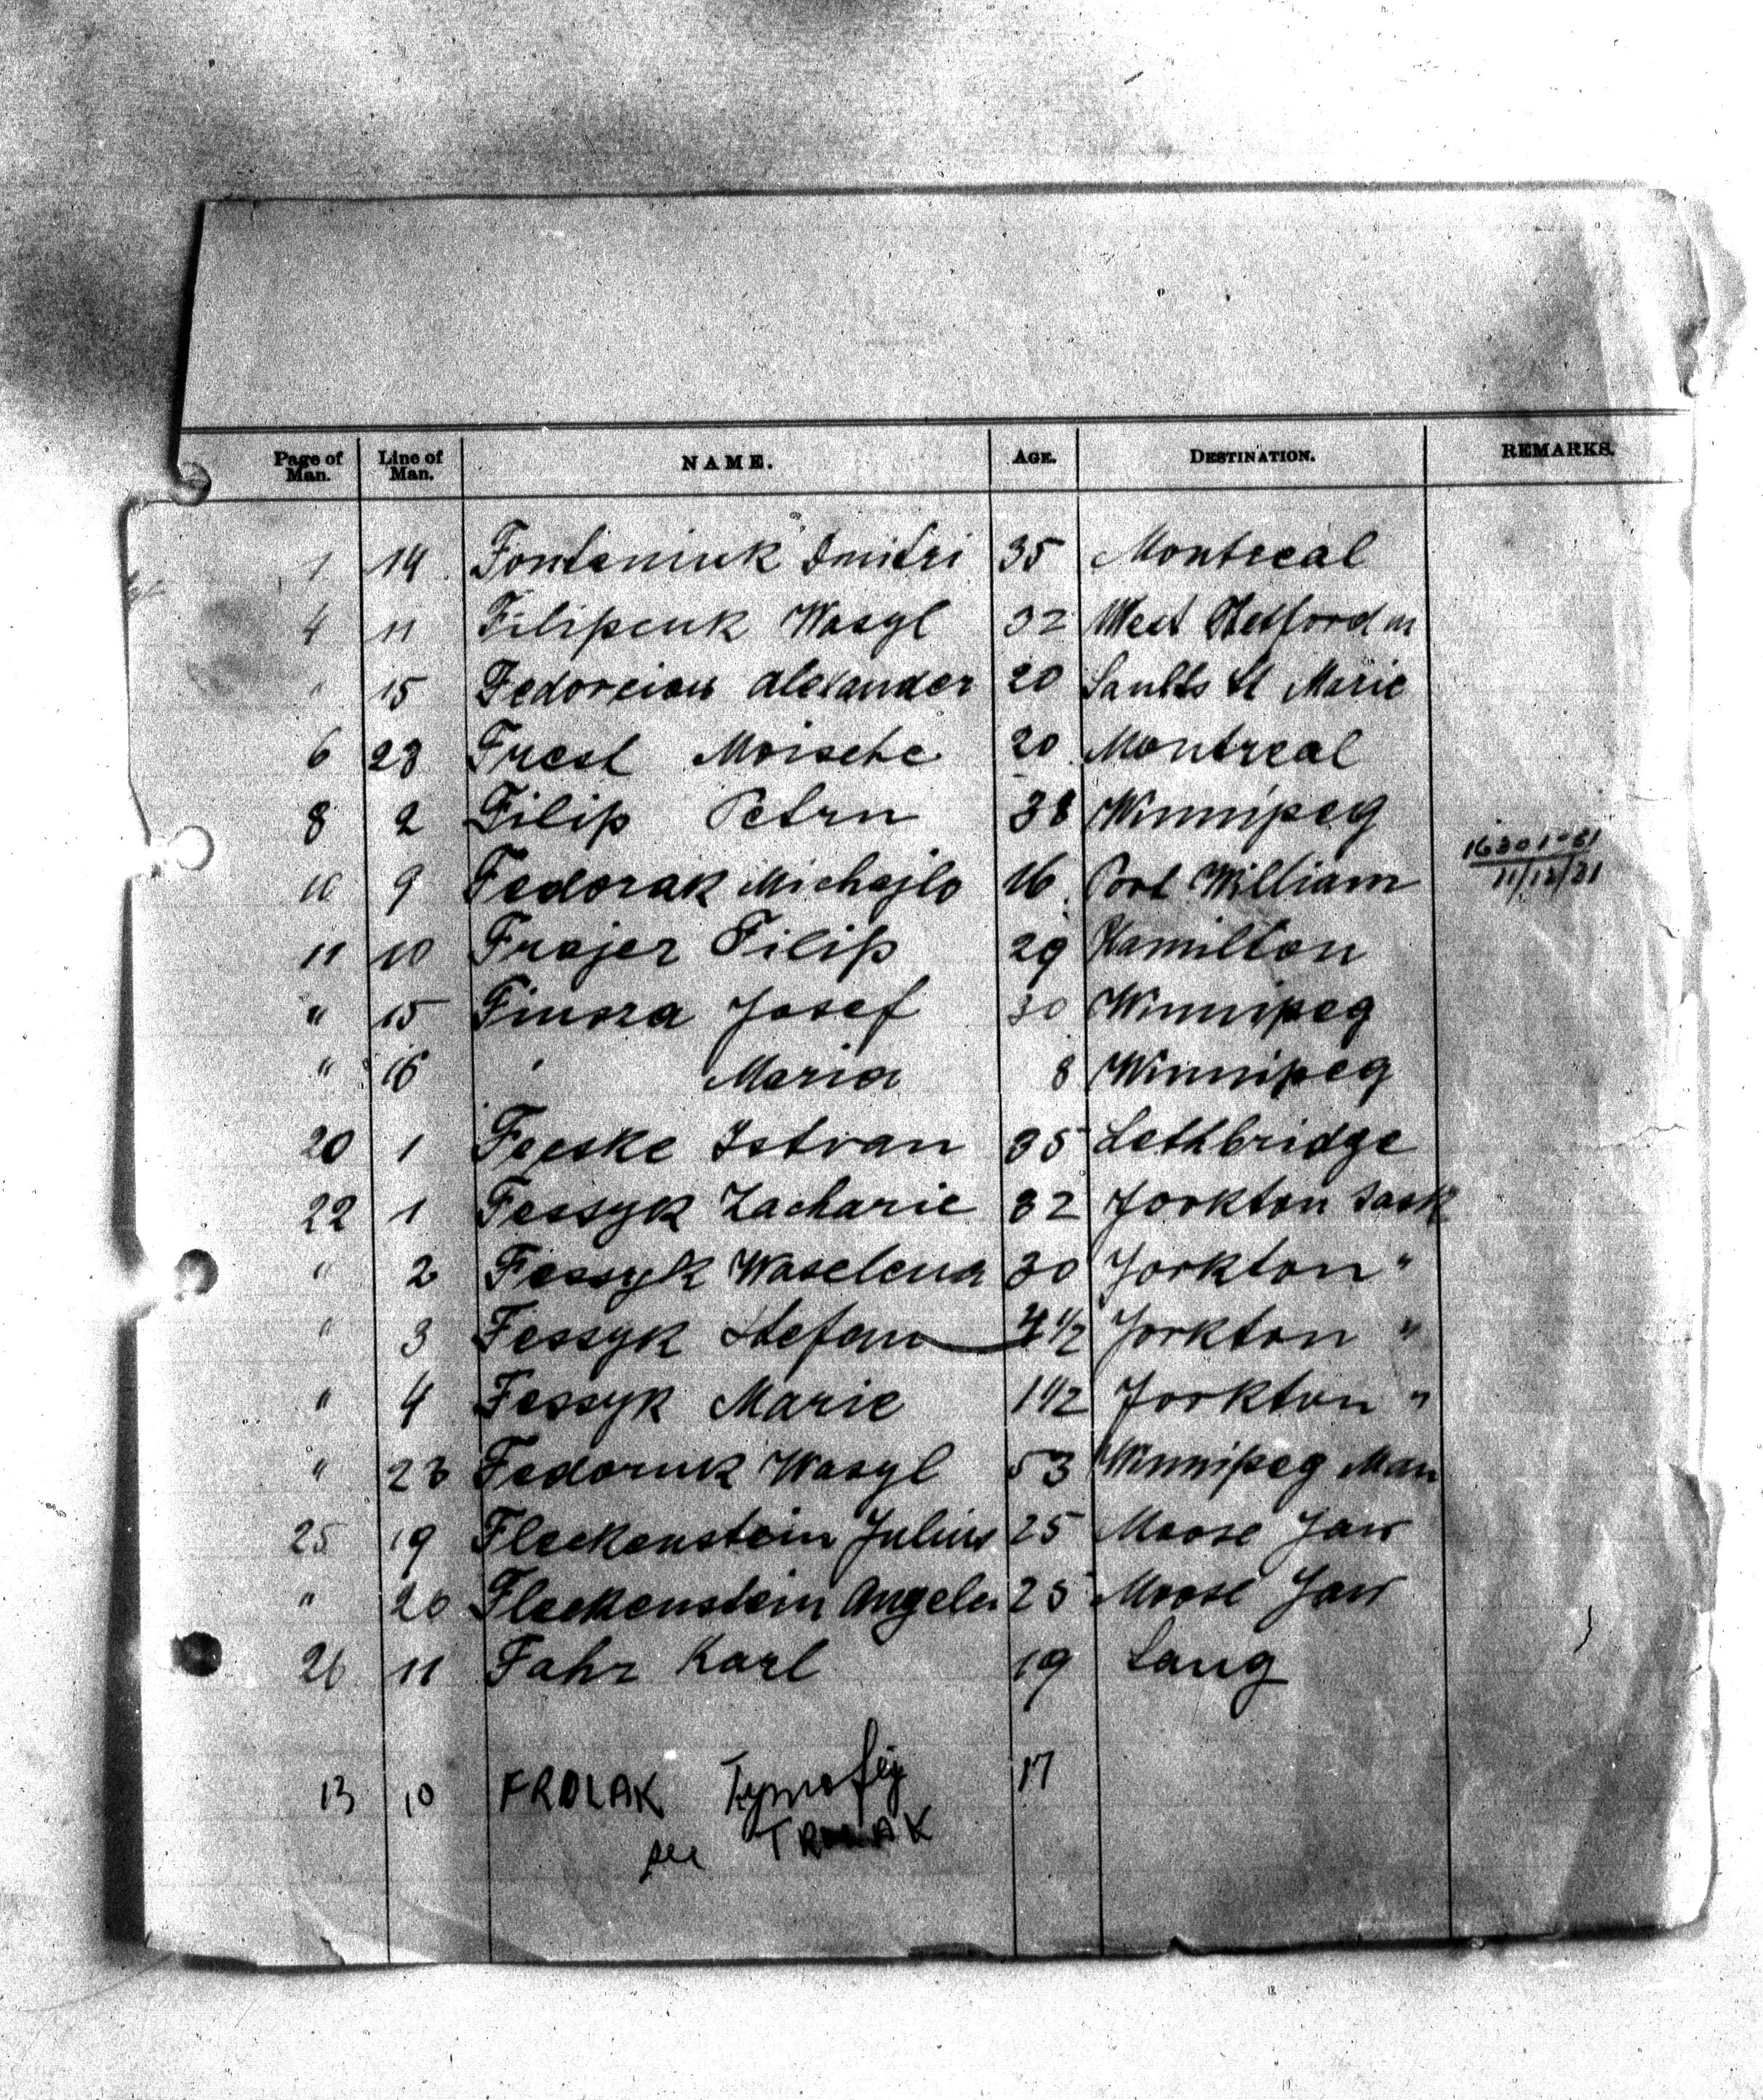 Page of Man. Line of Man. NAME. AGE. DESTINATION. REMARKS.
1 14 Fontaniuk Dmitri 35 Montreal
4 11 Filipcuk Wasyl 32 West
" 15 Alexander 20 Saults St Marie
6 23 Frest Moische 20 Montreal
8 2 Filip Petru 38 Winnipeg
10 9 Fedorak Michajlo 16 Port William 11/12/31
11 10 Frajer Filip 29 Hamilton
" 15 Finora Josef 30 Winnipeg
" 16 " Maria 8 Winnipeg
20 1 Fecske Istvan 35 Lethbridge
22 1 Fessyk Zacharie 32 Yorkton Sask
" 2 Fessyk Waselena 30 Yorkton "
" 3 Fessyk Stefan 4 1/2 Yorkton "
" 4 Fessyk Marie 1 1/2 Yorkton "
" 23 Fedoruk Wasyl 53 Winnipeg Man
25 19 Fleckenstein Julius 25 Moose Jaw
" 20 Fleckenstein Angela 25 Moose Jaw
26 11 Fahr Karl 19 Lang
13 10 FROLAK Tymofij 17
see TROLAK